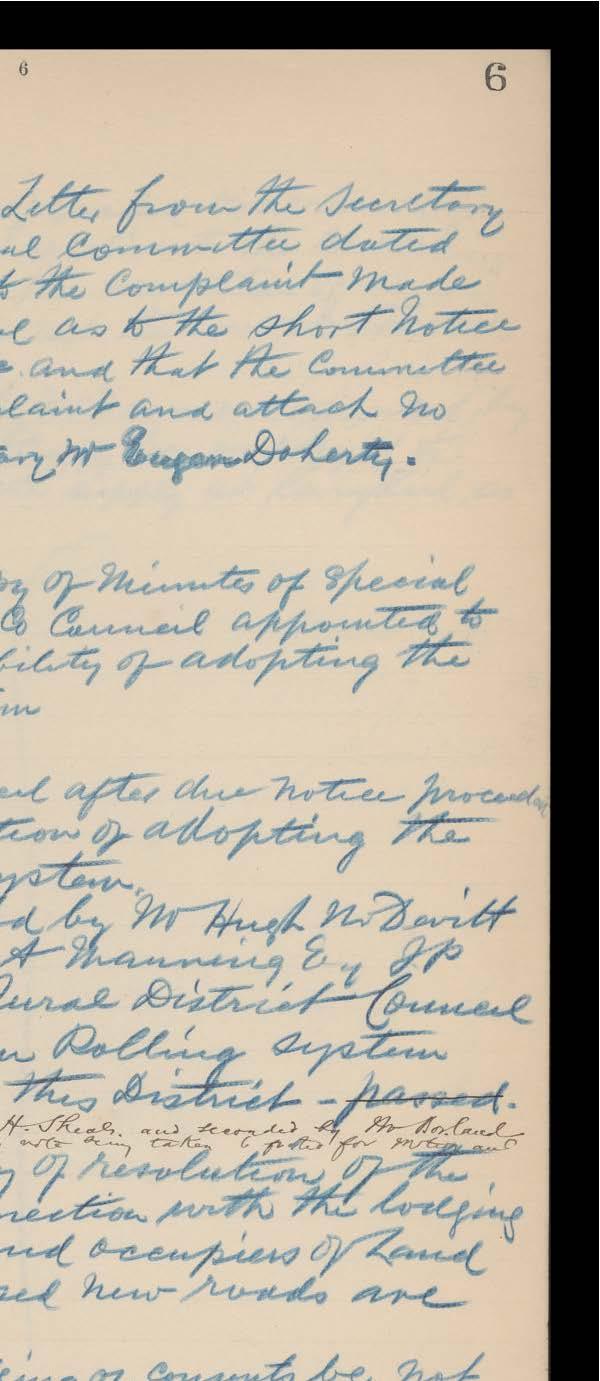 6 6
Letter from the Secretary
al Committee dated
to the Complaint made
l as to the short notice
e and that the Committee
laint and attach no
ary Mr Eugene Doherty.
py of Minutes of Special
Co Council appointed to
bility of adopting the
em
cil after due notice proceeded
tion of adopting the
ystem.
d by Mr Hugh McDevitt
A Manning Esq JP
Rural District Council
m Rolling system
this District - passed.
H. Sheals. and seconded by Mr Borland
vote being taken 6 voted for motion and
y of resolution of the
nection with the lodging
nd occupiers of Land
sed new roads are
of consents be not